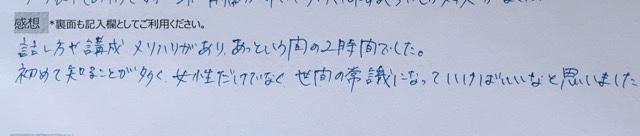 感想 *裏面も記入欄としてご利用ください。
話し方や講成 メリハリがあり、あっという間の2時間でした。
初めて知ることが多く、女性だけでなく 世間の常識になっていけばいいなと思いました